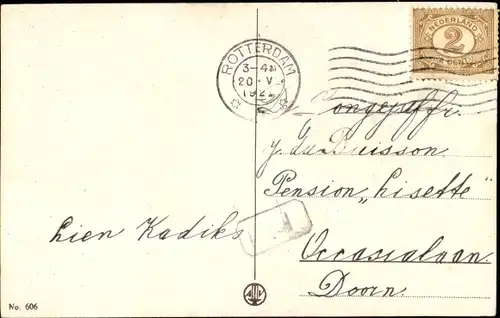 NEDERLAND
2
CENT
ROTTERDAM
3-4 N
20 V
192
Jongejuffr.
J. G. du Buisson.
Pension „Lisette"
Doorn.
Lien Kadiks
A V
No. 606